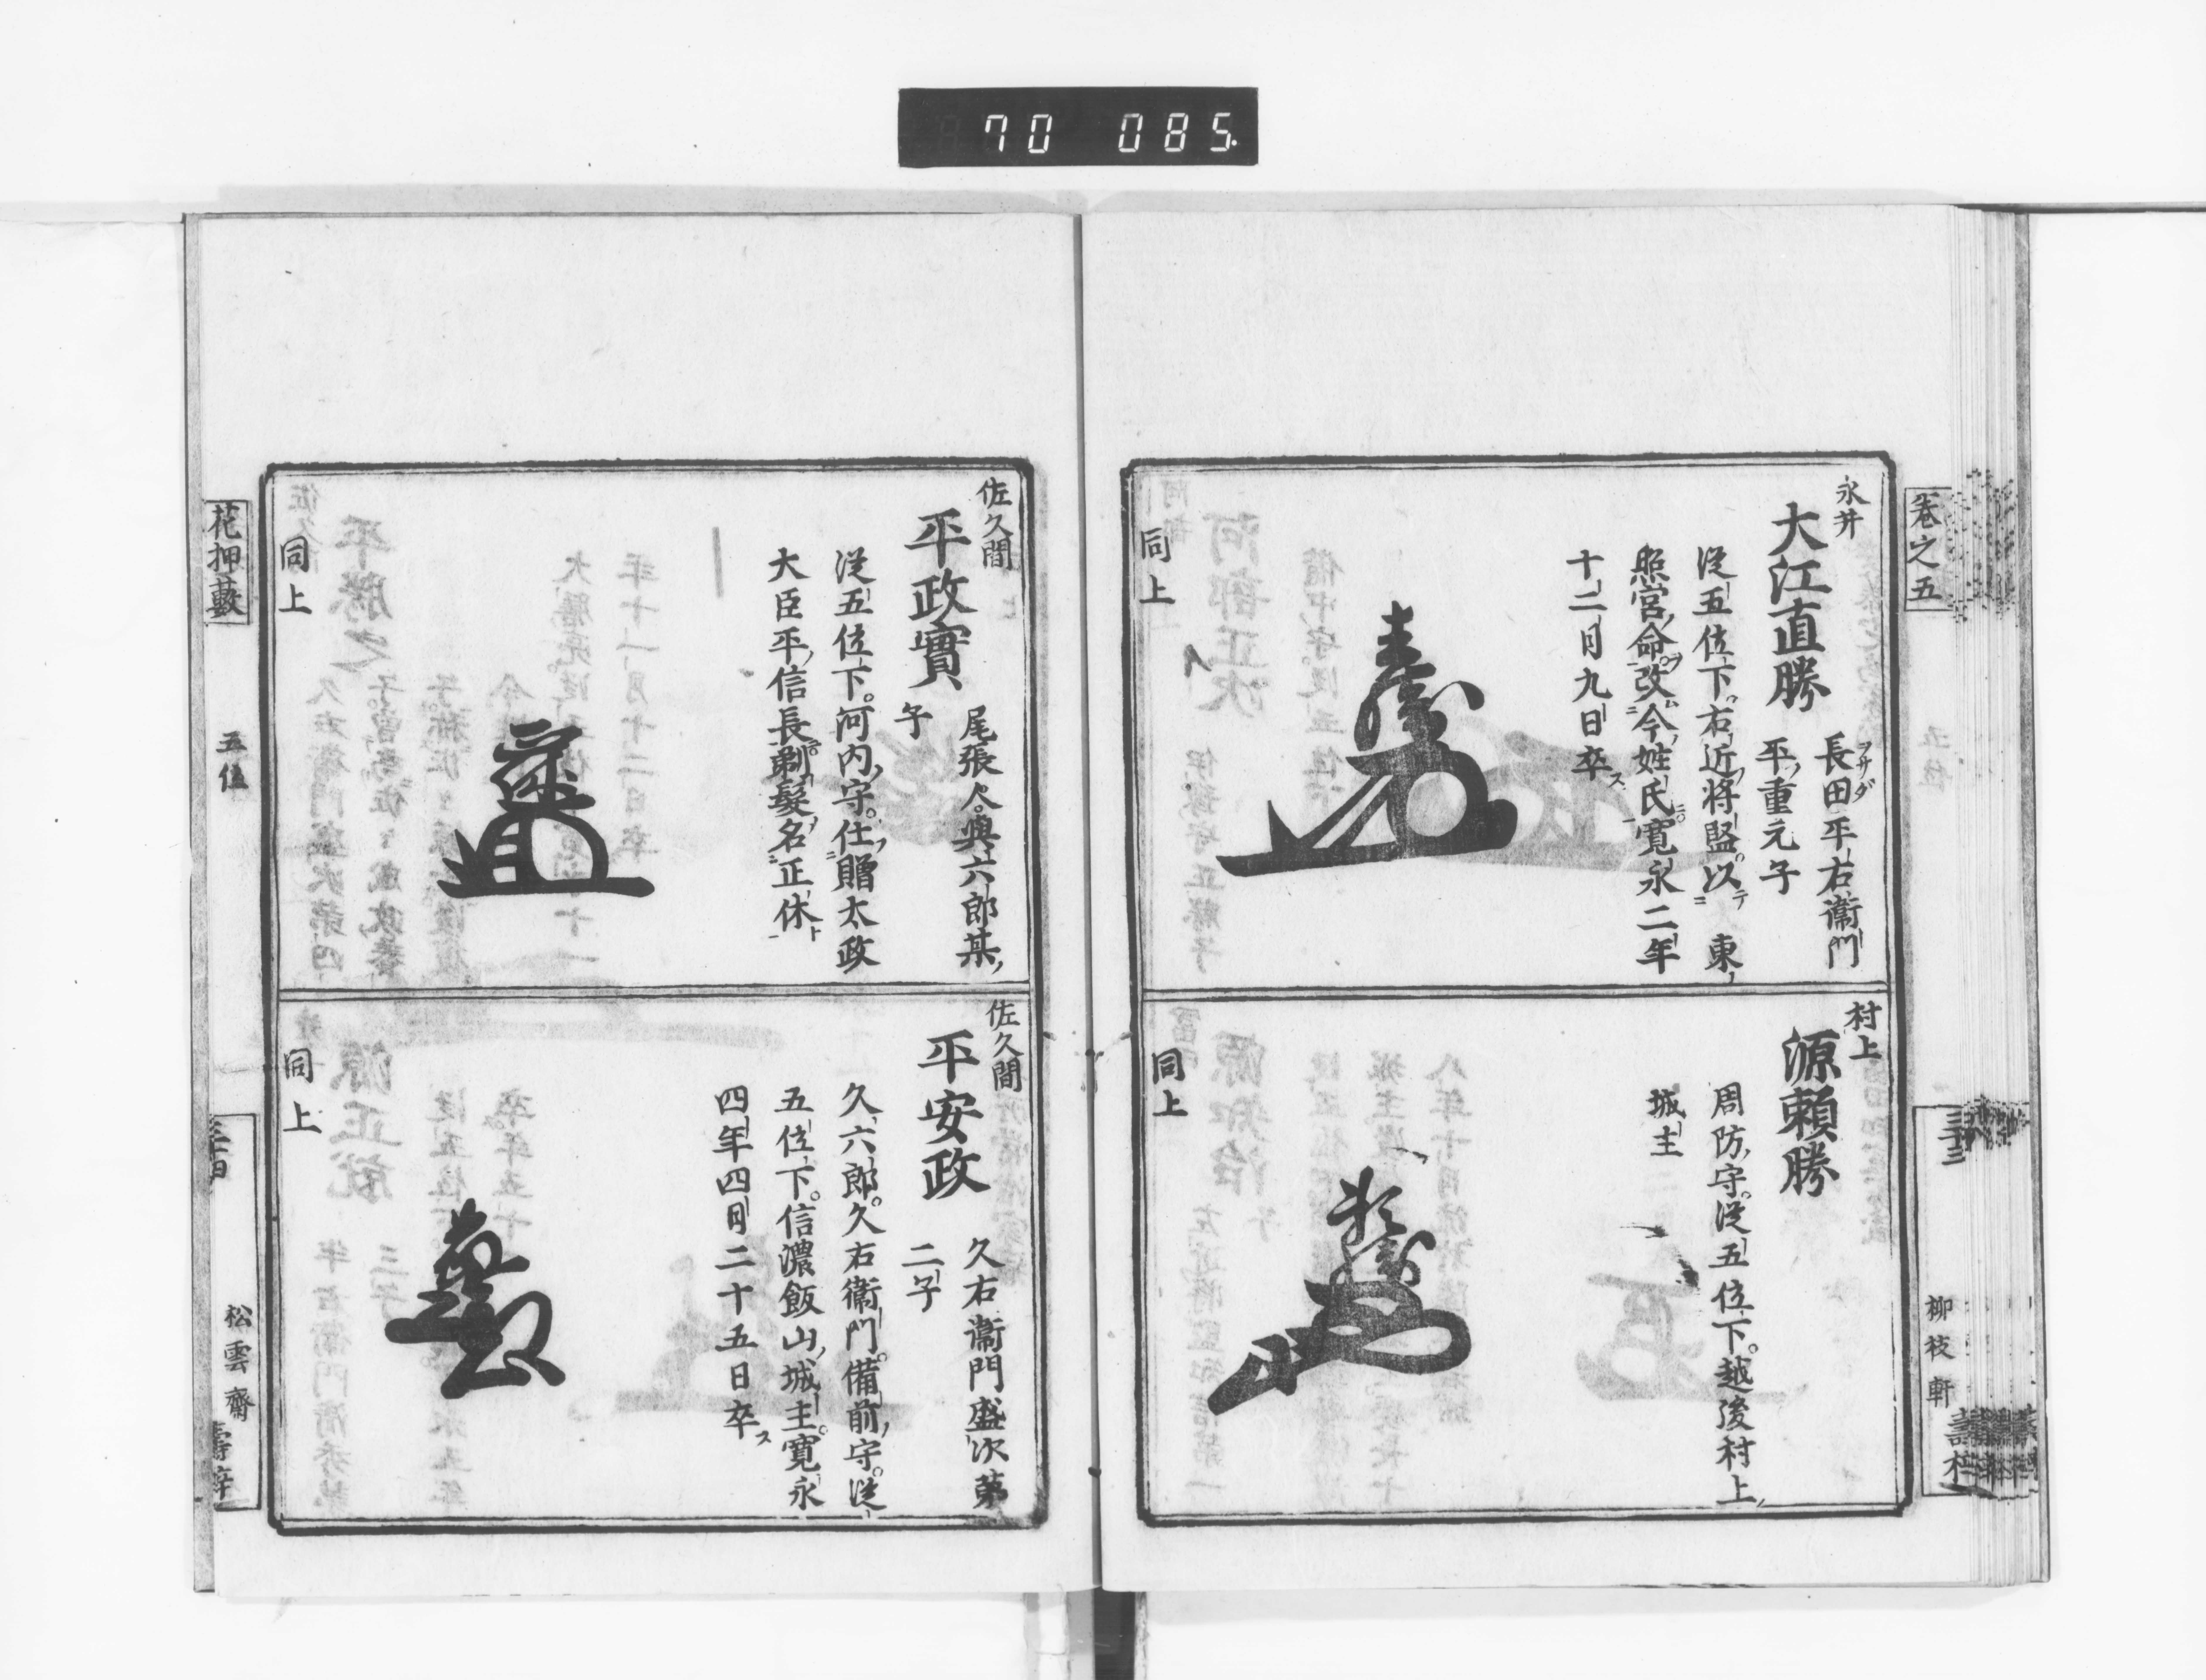 70 085
卷之五
三十三
柳枝軒
永井
大江直勝
長田平右衞門
ヲサダ
平重元子
從五位下。右近將監。以テ 東
照宮命改今姓氏寬永二年
十二月九日卒ス
同上
村上
源賴勝
周防守。從五位下。越後村上
城主
同上
佐久間
平政實
尾張人。與六郎某
子
從五位下。河内守。仕贈太政
大臣平信長剃髮名正休ト
同上
佐久間
平安政
久右衞門盛次第
二子
久六郎。久右衞門。備前守。從
五位下。信濃飯山城主。寬永
四年四月二十五日卒ス
同上
花押藪
五位
松雲齋